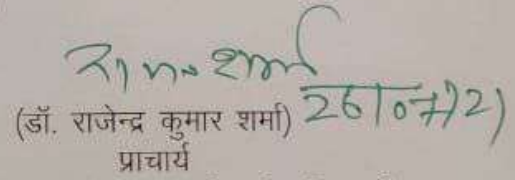 रा० कु० शर्मा
26/07/21
(डॉ. राजेन्द्र कुमार शर्मा)
प्राचार्य